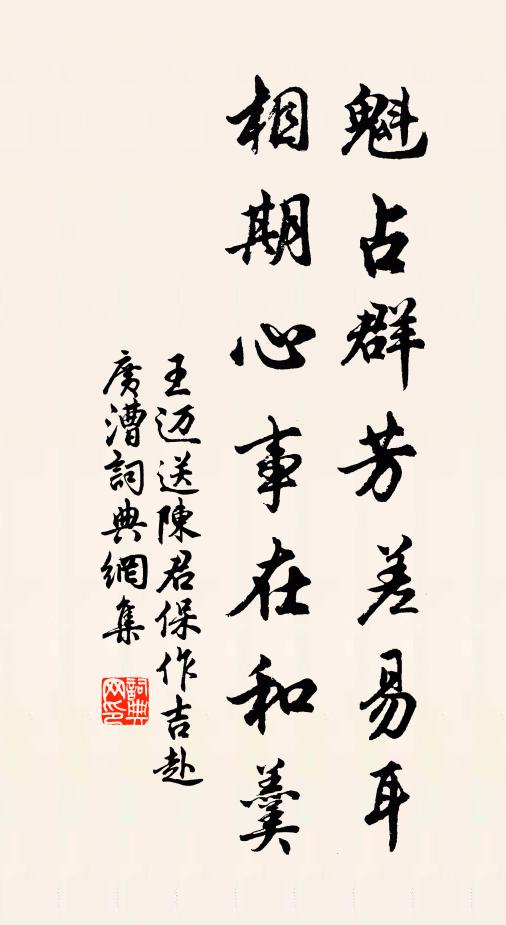 魁占群芳差易耳
相期心事在和羹
王迈送陳君保作吉赴
廣漕詞典網集
詞典网印